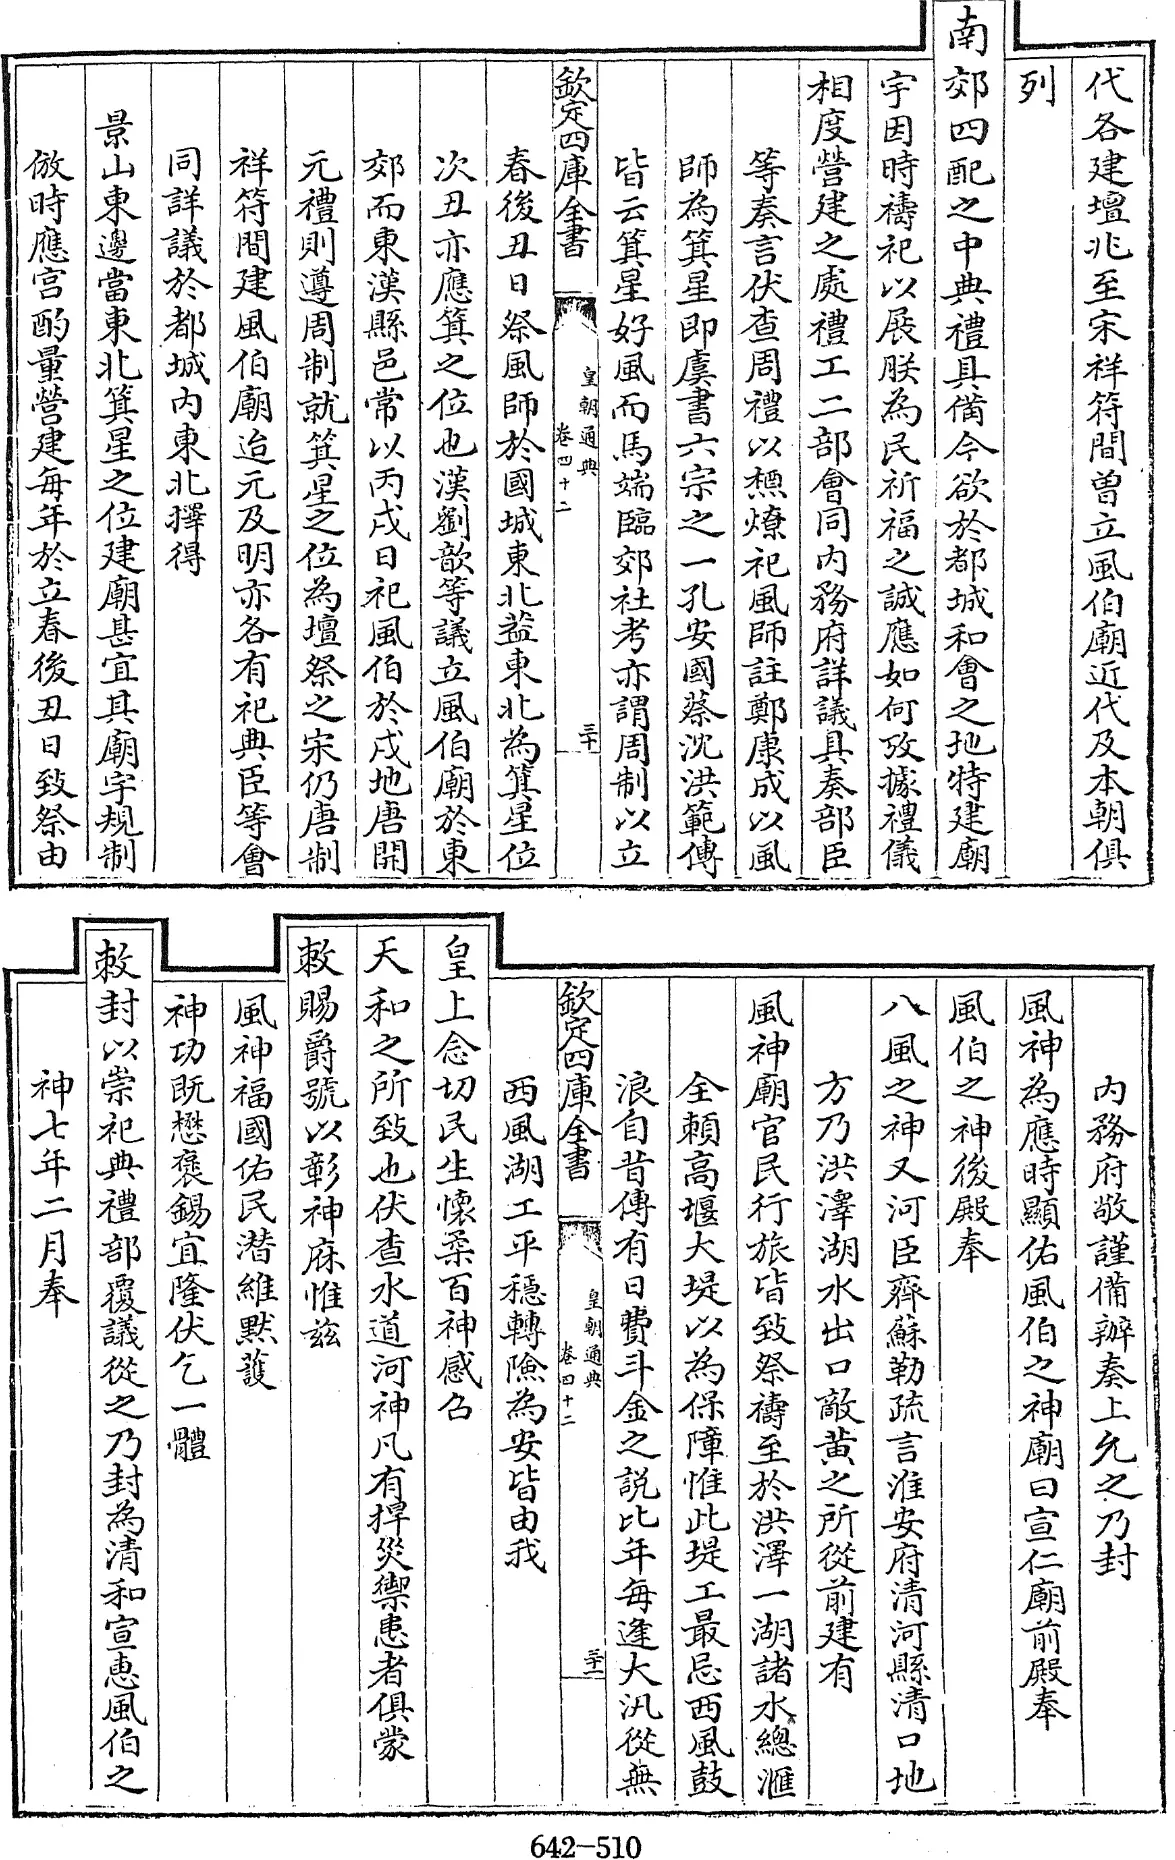 代各建壇兆至宋祥符間曽立風伯廟近代及本朝俱
列
南郊四配之中典禮具備今欲於都城和會之地特建廟
宇因時禱祀以展朕為民祈福之誠應如何攷據禮儀
相度營建之處禮工二部會同内務府詳議具奏部臣
等奏言伏查周禮以槱燎祀風師註鄭康成以風
師為箕星即虞書六宗之一孔安國蔡沈洪範傳
皆云箕星好風而馬端臨郊社考亦謂周制以立
欽定四庫全書
皇朝通典
卷四十二
三十
春後丑日祭風師於國城東北葢東北為箕星位
次丑亦應箕之位也漢劉歆等議立風伯廟於東
郊而東漢縣邑常以丙戌日祀風伯於戌地唐開
元禮則遵周制就箕星之位為壇祭之宋仍唐制
祥符間建風伯廟迨元及明亦各有祀典臣等會
同詳議於都城内東北擇得
景山東邊當東北箕星之位建廟甚宜其廟宇規制
倣時應宫酌量營建每年於立春後丑日致祭由
内務府敬謹備辦奏上允之乃封
風神為應時顯佑風伯之神廟曰宣仁廟前殿奉
風伯之神後殿奉
八風之神又河臣齊蘇勒疏言淮安府清河縣清口地
方乃洪澤湖水出口敵黄之所從前建有
風神廟官民行旅皆致祭禱至於洪澤一湖諸水總滙
全賴高堰大堤以為保障惟此堤工最忌西風鼓
浪自昔傳有日費斗金之説比年每逢大汛從無
欽定四庫全書
皇朝通典
卷四十二
三十一
西風湖工平穩轉險為安皆由我
皇上念切民生懷柔百神感召
天和之所致也伏查水道河神凡有捍災禦患者俱蒙
敕賜爵號以彰神庥惟兹
風神福國佑民潛維黙護
神功既懋褒錫宜隆伏乞一體
敕封以崇祀典禮部覆議從之乃封為清和宣惠風伯之
神七年二月奉
642-510